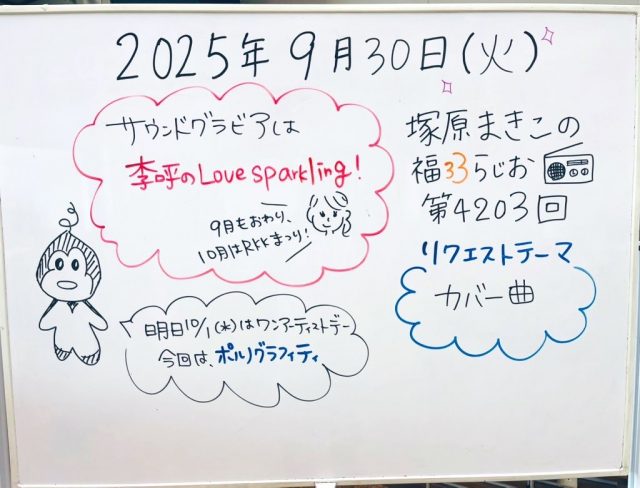 2025年9月30日(火)
サウンドグラビアは
李呼のLove sparkling!
9月もおわり、
10月はRKKまつり!
塚原まきこの
福33らじお
第4203回
リクエストテーマ
カバー曲
明日10/1(水)はワンアーティストデー
今回は、ポルノグラフィティ